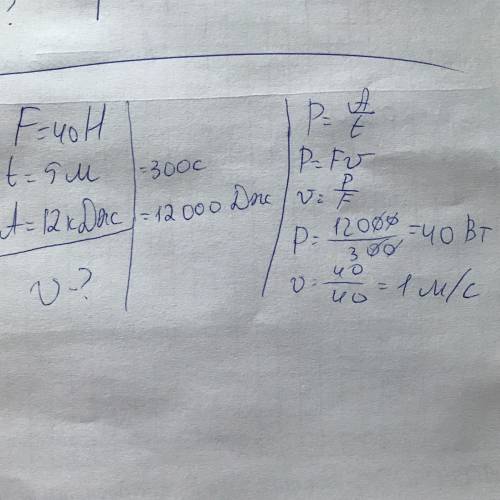 F=40H
t=5м =300с
A=12кДж =12000 Дж
v-?
P=A/t
P=Fv
v=P/F
P=12000/300=40 Вт
v=40/40=1 м/с